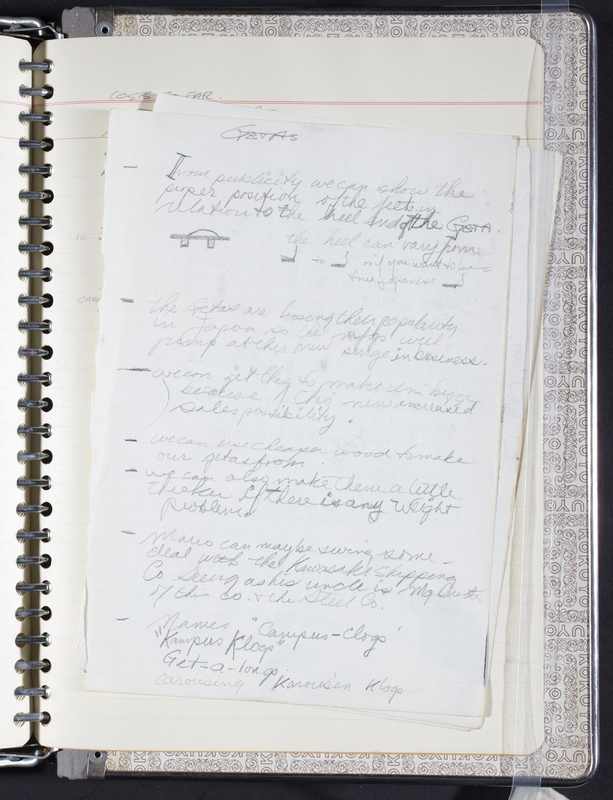 COSTS SO FAR.
GETAS
— In our publicity we can show the
proper position of the feet in
relation to the heel end of the GETA.
the heel can vary from
to or if you want to be a
true Japanese
— the Getas are loosing their popularity
in Japan so the mfgs will
jump at this new surge in business.
— we can get they to make em bigger
because of this new increased
sales possibility.
— we can use cheaper wood to make
our getas from.
— we can also make them a little
thicker if there is any weight
problems
— Mario can maybe swing some-
deal with the Kawasaki Shipping
Co Seeing as his uncle is
of this Co. & the Steel Co.
— Names "Campus-Clogs"
"Kampus Klogs"
Get-a-longs
Carousing Karousen Klogs
KOKUYO